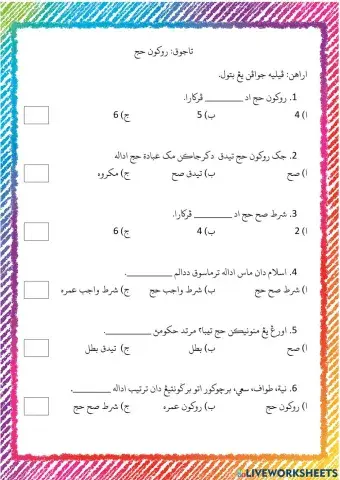 تاجوق: روكون حج
اراهن: ڤيليه جواڤن يڠ بتول.
1. روكون حج اد ________ ڤركارا.
ا) 4 ب) 5 ج) 6
2. جک روكون حج تيدق دكرجاكن مک عبادة حج اداله
ا) صح ب) تيدق صح ج) مكروه
3. شرط صح حج اد ________ ڤركارا.
ا) 2 ب) 4 ج) 6
4. اسلام دان ماس اداله ترماسوق ددالم __________.
ا) شرط صح حج ب) شرط واجب حج ج) شرط واجب عمره
5. اورڠ يڠ منونيكن حج تيبا٢ مرتد حكومن __________.
ا) صح ب) بطل ج) تيدق بطل
6. نية، طواف، سعي، برچوكور اتو برݢونتيڠ دان ترتيب اداله ________.
ا) روكون حج ب) روكون عمره ج) شرط صح حج
LIVEWORKSHEETS